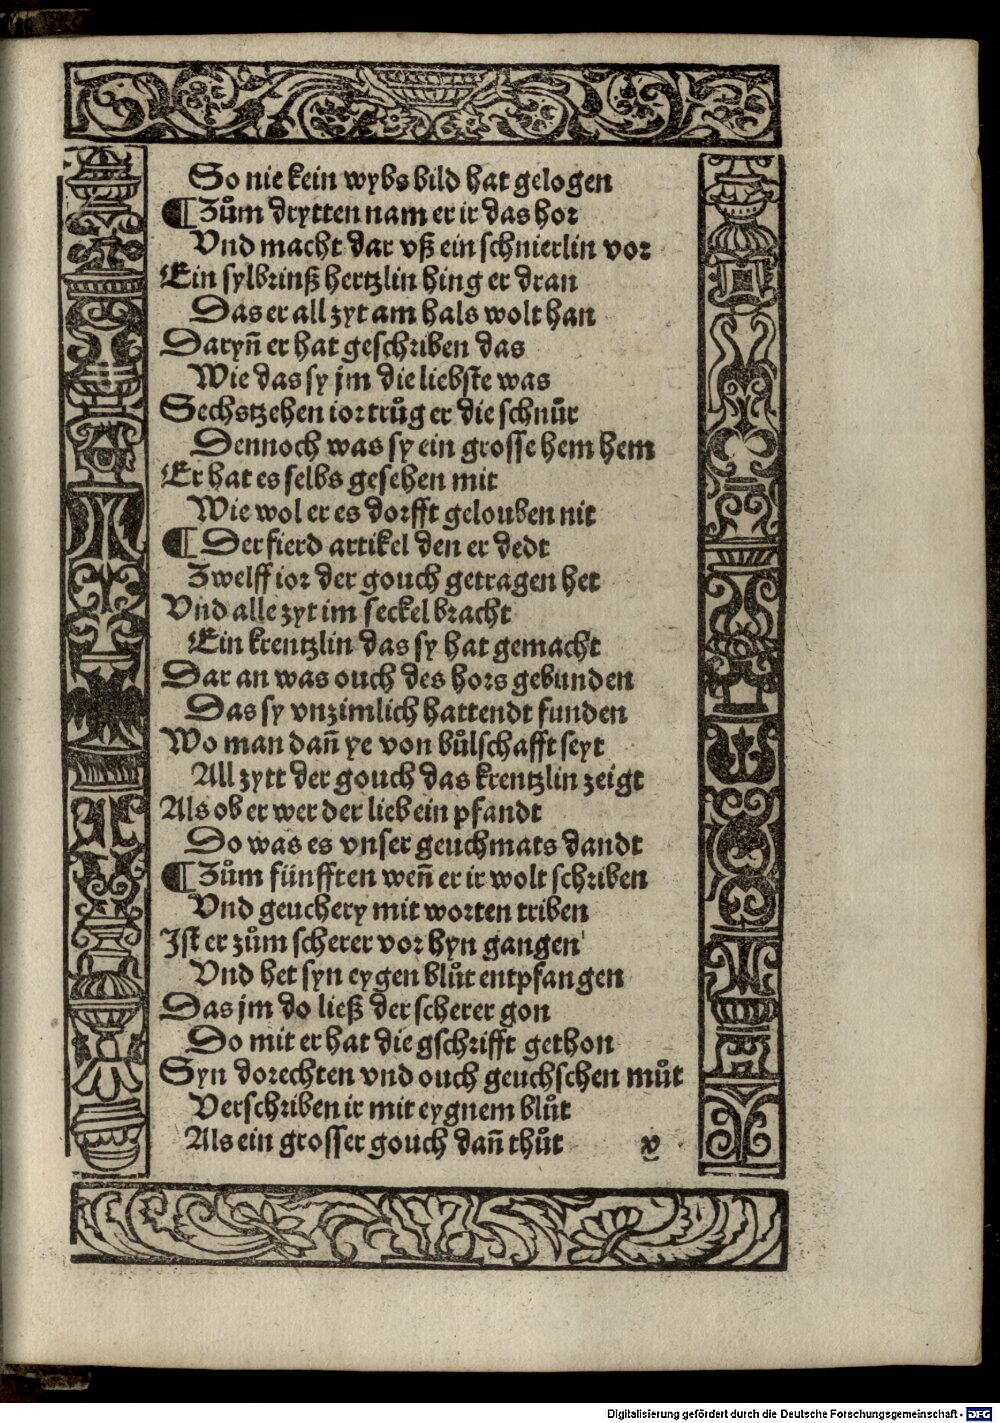 So nie kein wybs bild hat gelogen
¶ Zům drytten nam er ir das hor
Vnd macht dar vß ein schnierlin vor
Ein sylbrinß hertzlin hing er dran
Das er all zyt am hals wolt han
Daryn̄ er hat geschriben das
Wie das sy jm die liebste was
Sechstzehen ior trůg er die schnůr
Dennoch was sy ein grosse hem hem
Er hat es selbs gesehen mit
Wie wol er es dorfft gelouben nit
¶ Der fierd artikel den er dedt
Zwelff ior der gouch getragen het
Vnd alle zyt im seckel bracht
Ein krentzlin das sy hat gemacht
Dar an was ouch des hors gebunden
Das sy vnzimlich hattendt funden
Wo man dan̄ ye von bůlschafft seyt
All zytt der gouch das krentzlin zeigt
Als ob er wer der lieb ein pfandt
Do was es vnser geuchmats dandt
¶ Zům fünfften wen̄ er ir wolt schriben
Vnd geuchery mit worten triben
Ist er zům scherer vor hyn gangen
Vnd het syn eygen blůt entpfangen
Das jm do ließ der scherer gon
Do mit er hat die gschrifft gethon
Syn dorechten vnd ouch geuchschen můt
Verschriben ir mit eygnem blůt
Als ein grosser gouch dan̄ thůt v
Digitalisierung gefördert durch die Deutsche Forschungsgemeinschaft - DFG